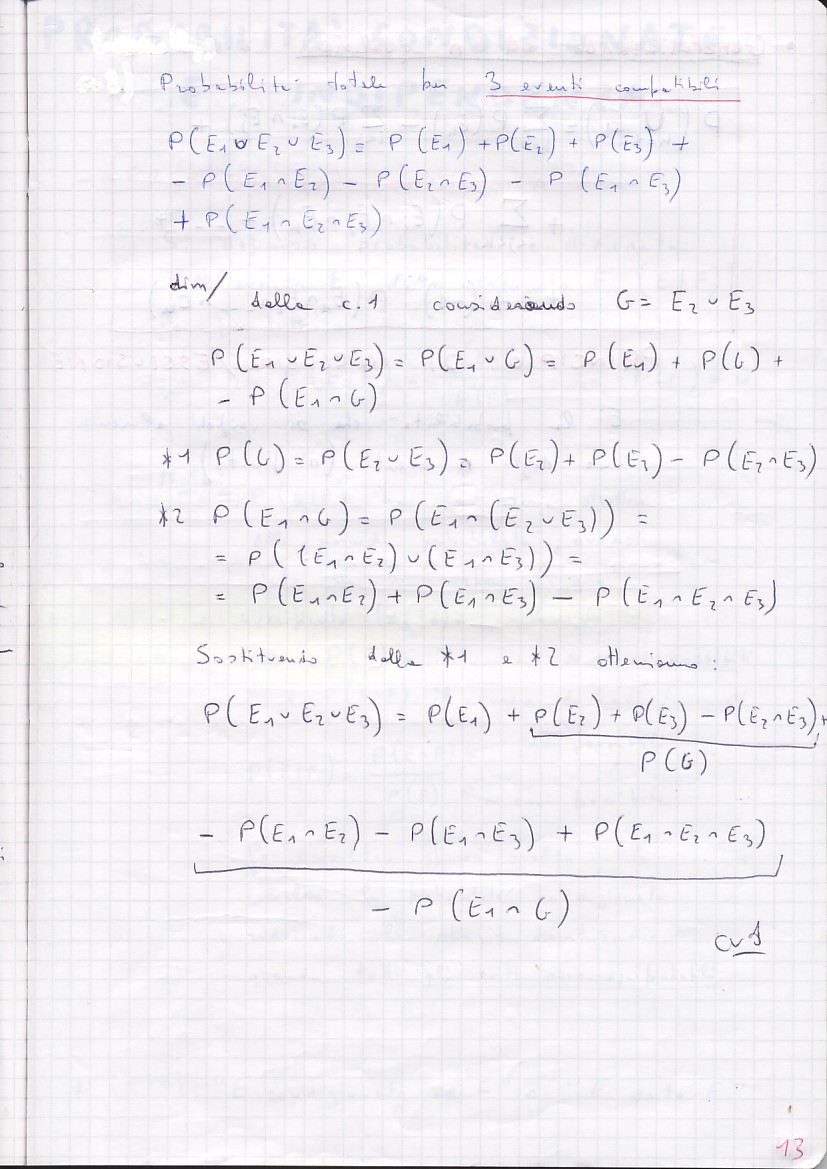 Probabilità totale per 3 eventi compatibili
P(E₁ ∪ E₂ ∪ E₃) = P(E₁) + P(E₂) + P(E₃) +
- P(E₁ ∩ E₂) - P(E₂ ∩ E₃) - P(E₁ ∩ E₃)
+ P(E₁ ∩ E₂ ∩ E₃)
dim/ dalla c.1 considerando G = E₂ ∪ E₃
P(E₁ ∪ E₂ ∪ E₃) = P(E₁ ∪ G) = P(E₁) + P(G) +
- P(E₁ ∩ G)
*1 P(G) = P(E₂ ∪ E₃) = P(E₂) + P(E₃) - P(E₂ ∩ E₃)
*2 P(E₁ ∩ G) = P(E₁ ∩ (E₂ ∪ E₃)) =
= P((E₁ ∩ E₂) ∪ (E₁ ∩ E₃)) =
= P(E₁ ∩ E₂) + P(E₁ ∩ E₃) - P(E₁ ∩ E₂ ∩ E₃)
Sostituendo dalla *1 e *2 otteniamo:
P(E₁ ∪ E₂ ∪ E₃) = P(E₁) + P(E₂) + P(E₃) - P(E₂ ∩ E₃) +
P(G)
- P(E₁ ∩ E₂) - P(E₁ ∩ E₃) + P(E₁ ∩ E₂ ∩ E₃)
- P(E₁ ∩ G)
13